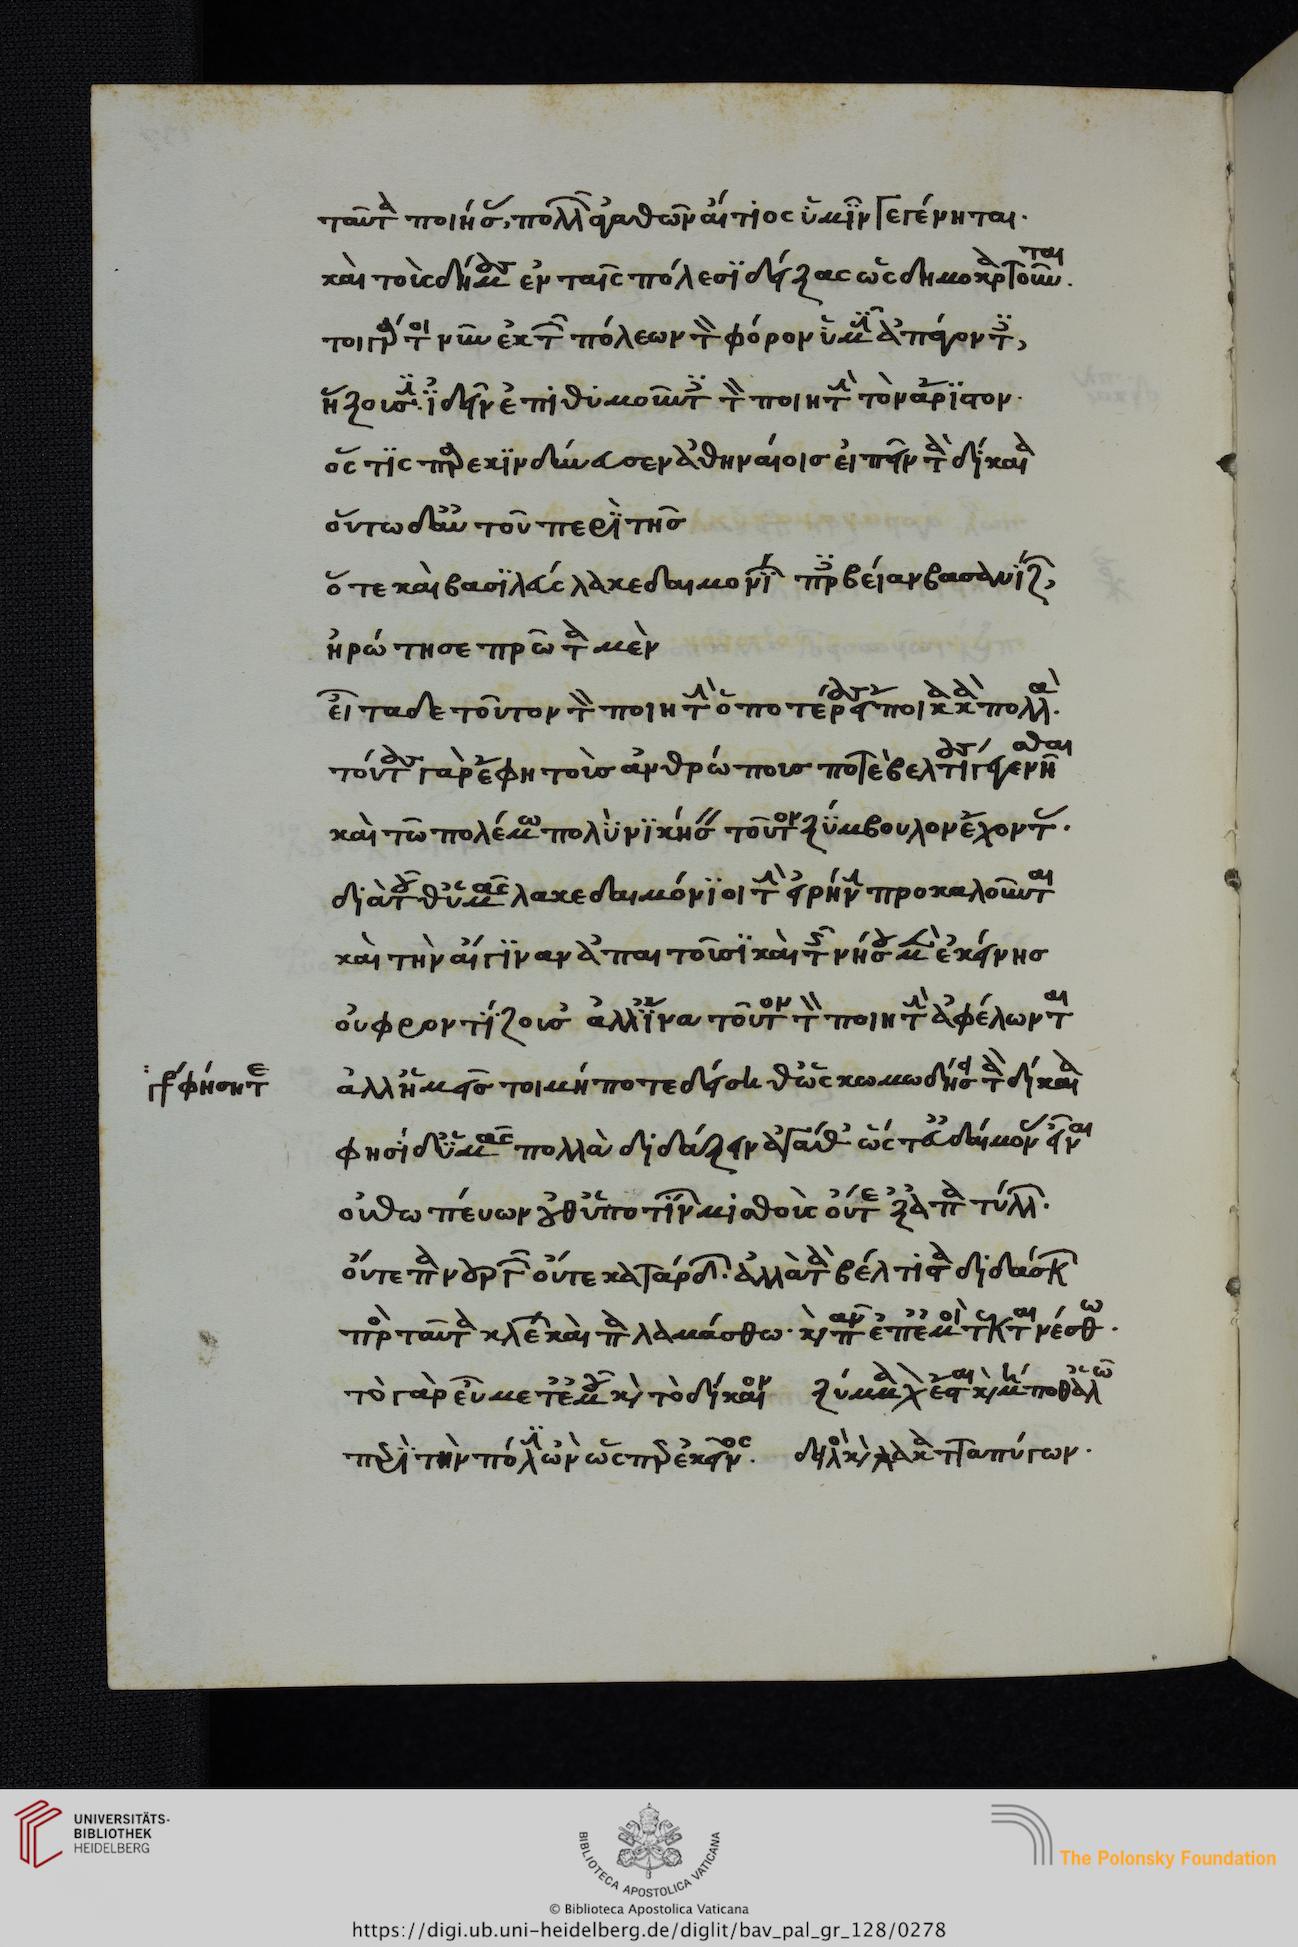 ταῦτα ποιήσας, πολλῶν ἀγαθῶν αἴτιος ὑμῖν γεγένηται.
καὶ τοὺς δήμους ἐν ταῖς πόλεσι δείξας ὡς δημοκρατοῦνται.
τοιγάρτοι νῦν ἐκ τῶν πόλεων τὸν φόρον ὑμῖν ἀπάγοντες,
ἥξουσιν ἰδεῖν ἐπιθυμοῦντες τὸν ποιητὴν τὸν ἄριστον.
ὅστις παρεκινδύνευσεν ἀθηναίοις εἰπεῖν τὰ δίκαια
οὕτω δ' αὐτοῦ περὶ τῆς
ὅτε καὶ βασιλεὺς λακεδαιμονίων πρεσβείαν βασανίζων,
ἠρώτησε πρῶτα μὲν
εἶτα δὲ τοῦτον τὸν ποιητὴν ὁποτέρους εἴποι κακὰ πολλά.
τούτους γὰρ ἔφη τοὺς ἀνθρώπους βελτίους γεγενῆσθαι
καὶ τῷ πολέμῳ πολὺ νικήσειν τοῦτον ξύμβουλον ἔχοντας.
διὰ τοῦθ' ὑμᾶς λακεδαιμόνιοι τὴν εἰρήνην προκαλοῦνται
καὶ τὴν αἴγιναν ἀπαιτοῦσι καὶ τῆς νήσου μὲν ἐκείνης
οὐ φροντίζουσ' ἀλλ' ἵνα τοῦτον τὸν ποιητὴν ἀφέλωνται
γρ. ἀφήσητε ἀλλ' ὑμεῖς τοι μήποτε δείσηθ' ὡς κωμωδήσει τὰ δίκαια
φησὶ δ' ὑμᾶς πολλὰ διδάξειν ἀγάθ' ὥστ' εὐδαίμονας εἶναι
οὐ θωπεύων οὐθ' ὑποτείνων μισθοὺς οὔτ' ἐξαπατύλλων.
οὔτε πανουργῶν οὔτε κατάρδων. ἀλλὰ τὰ βέλτιστα διδάσκων
πρὸς ταῦτα κλέων καὶ παλαμάσθω. καὶ πᾶν ἐπ' ἐμοὶ τεκταινέσθω.
τὸ γὰρ εὖ μετ' ἐμοῦ καὶ τὸ δίκαιον ξύμμαχον ἔσται καὶ μή ποθ' ἁλῶ
περὶ τὴν πόλιν ὢν ὥσπερ ἐκεῖνος. δειλὸς καὶ λακαταπύγων.
UNIVERSITÄTS-
BIBLIOTHEK
HEIDELBERG
BIBLIOTECA APOSTOLICA VATICANA
The Polonsky Foundation
© Biblioteca Apostolica Vaticana
https://digi.ub.uni-heidelberg.de/diglit/bav_pal_gr_128/0278